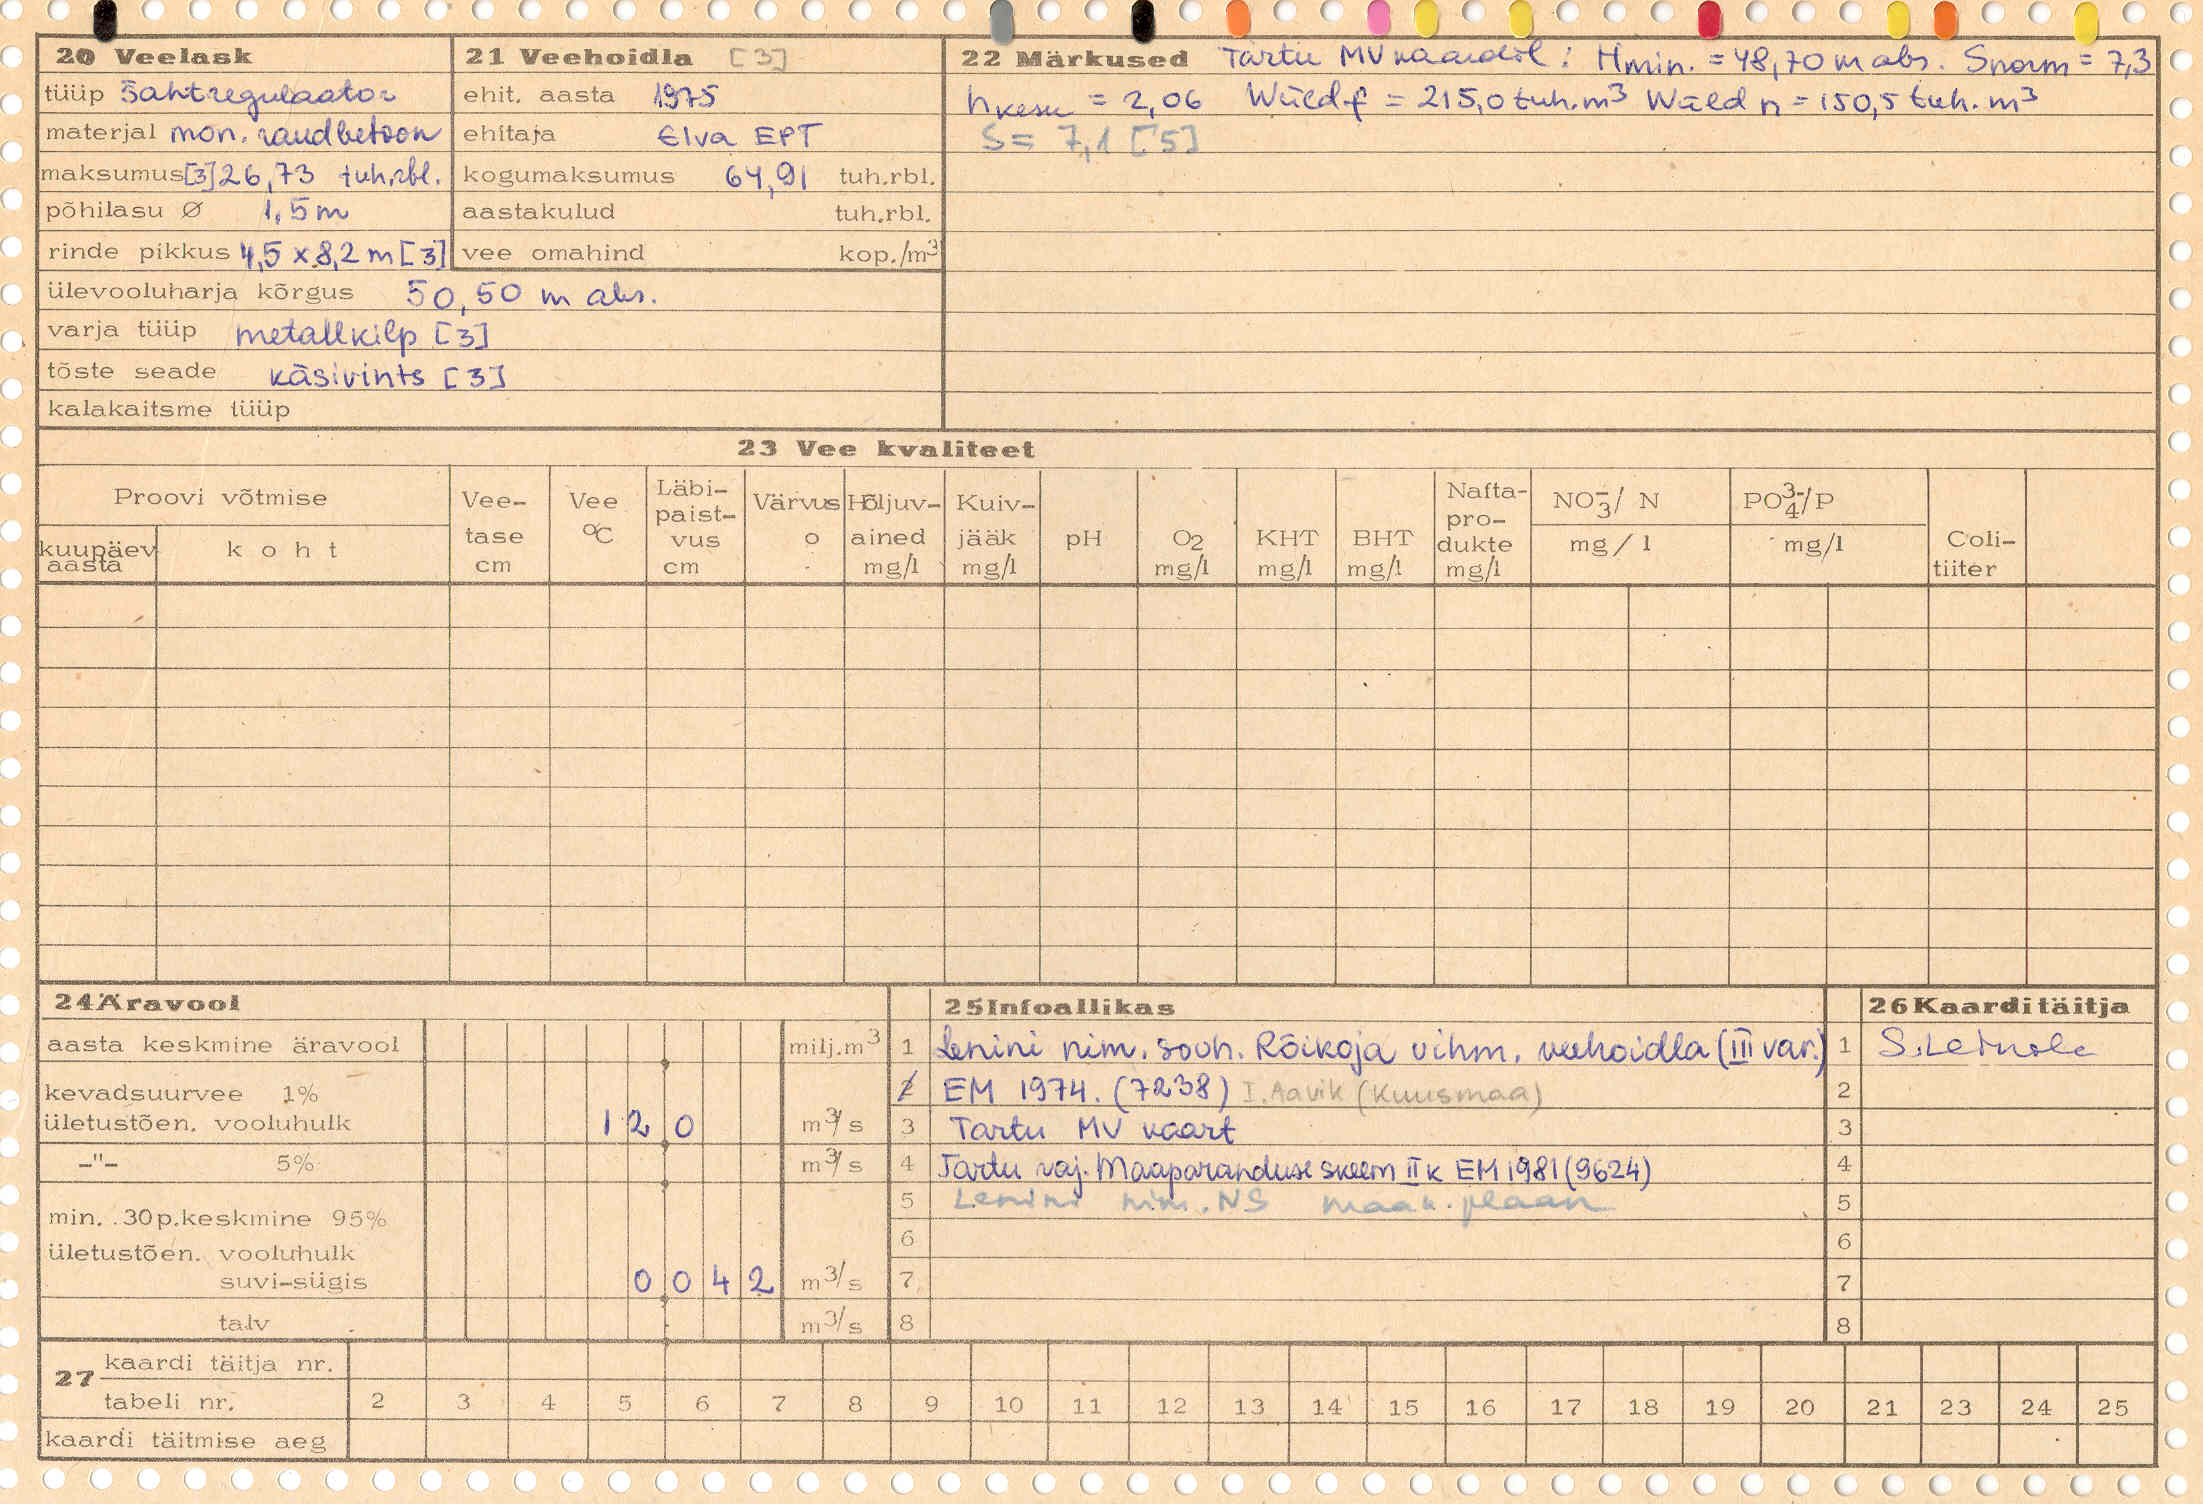 20 Veelask
tüüp Šahtregulaator
materjal mon. raudbetoon
maksumus [3] 26,73 tuh.rbl.
põhilasu Ø 1,5 m
rinde pikkus 4,5 x 8,2 m [3]
ülevooluharja kõrgus 50,50 m abs.
varja tüüp metallkilp [3]
tõste seade käsivints [3]
kalakaitsme tüüp
21 Veehoidla [3]
ehit. aasta 1975
ehitaja Elva EPT
kogumaksumus 64,91 tuh.rbl.
aastakulud tuh.rbl.
vee omahind kop./m³
22 Märkused Tartu MV kaardil: Hmin. = 48,70 m abs. Snorm = 7,3
hkesk = 2,06 Wüldf = 215,0 tuh.m³ Wüld n = 150,5 tuh. m³
S = 7,1 [5]
23 Vee kvaliteet
Proovi võtmise
kuupäev aasta
koht
Vee-tase cm
Vee °C
Läbi-paist-vus cm
Värvus o
Hõljuv-ained mg/l
Kuiv-jääk mg/l
pH
O2 mg/l
KHT mg/l
BHT mg/l
Nafta-pro-dukte mg/l
NO₃⁻/ N mg / l
PO₄³⁻/P mg/l
Coli-tiiter
24 Äravool
aasta keskmine äravool milj.m³
kevadsuurvee 1%
ületustõen. vooluhulk 12 0 m³/s
-"- 5% m³/s
min. 30p.keskmine 95%
ületustõen. vooluhulk
suvi-sügis 0 042 m³/s
talv m³/s
25 Infoallikas
1 Lenini nim. sovh. Rõikoja vihm. veehoidla (III var.)
2 EM 1974. (7238) I. Aavik (Kuusmaa)
3 Tartu MV kaart
4 Tartu raj. Maaparanduse skeem II k EM 1981 (9624)
5 Lenini nim. NS maak. plaan
6
7
8
26 Kaarditäitja
1
2
3
4
5
6
7
8
27 kaardi täitja nr.
tabeli nr. 2 3 4 5 6 7 8 9 10 11 12 13 14 15 16 17 18 19 20 21 23 24 25
kaardi täitmise aeg